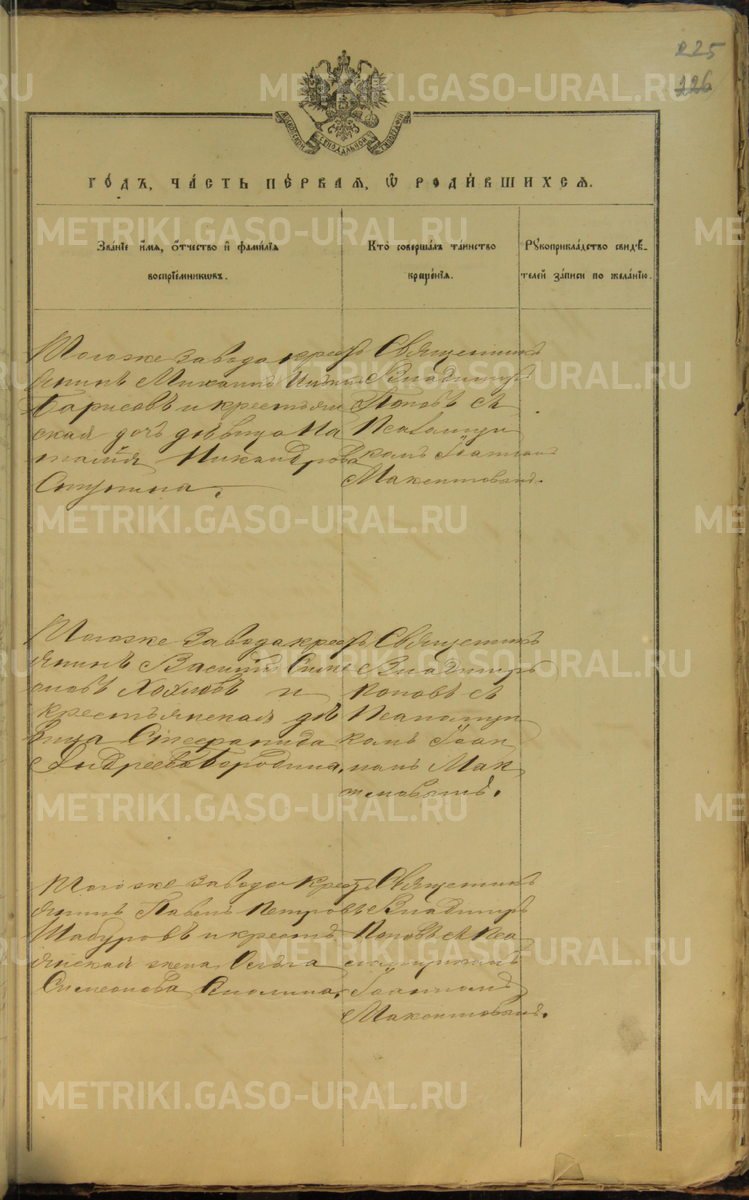 225
226
METRIKI.GASO-URAL.RU
СѴНОДАЛЬНОЙ
ГОДЪ, ЧАСТЬ ПЕРВАЯ, Ѡ РОДИВШИХСЯ.
Званіе имя, отчество и фамилія воспріемниковъ.
Кто совершалъ таинство крещенія.
Рукоприкладство свидѣтелей записи по желанію.
Тогоже завода крестъ
янинъ Михаилъ
Борисовъ и крестьян
ская дочь дѣвица На
талія Никандрова
Ступина.
Священникъ
Владимiръ
Поповъ съ
Псаломщи
комъ Іоанном
Максимовымъ.
Тогоже завода крест
янинъ Василій Симе
оновъ Хохловъ и
крестьянская дѣ
вица Стефанида
Андреева Бородина.
Священникъ
Владимiръ
Поповъ съ
Псаломщи
комъ Іоан
номъ Мак
симовымъ.
Тогоже завода крест
янинъ Павелъ Петровъ
Шабуровъ и крестъ
янская жена Ольга
Симеонова
Священникъ
Владимiръ
Поповъ съ Пса
ломщикомъ
Іоанномъ
Максимовымъ.